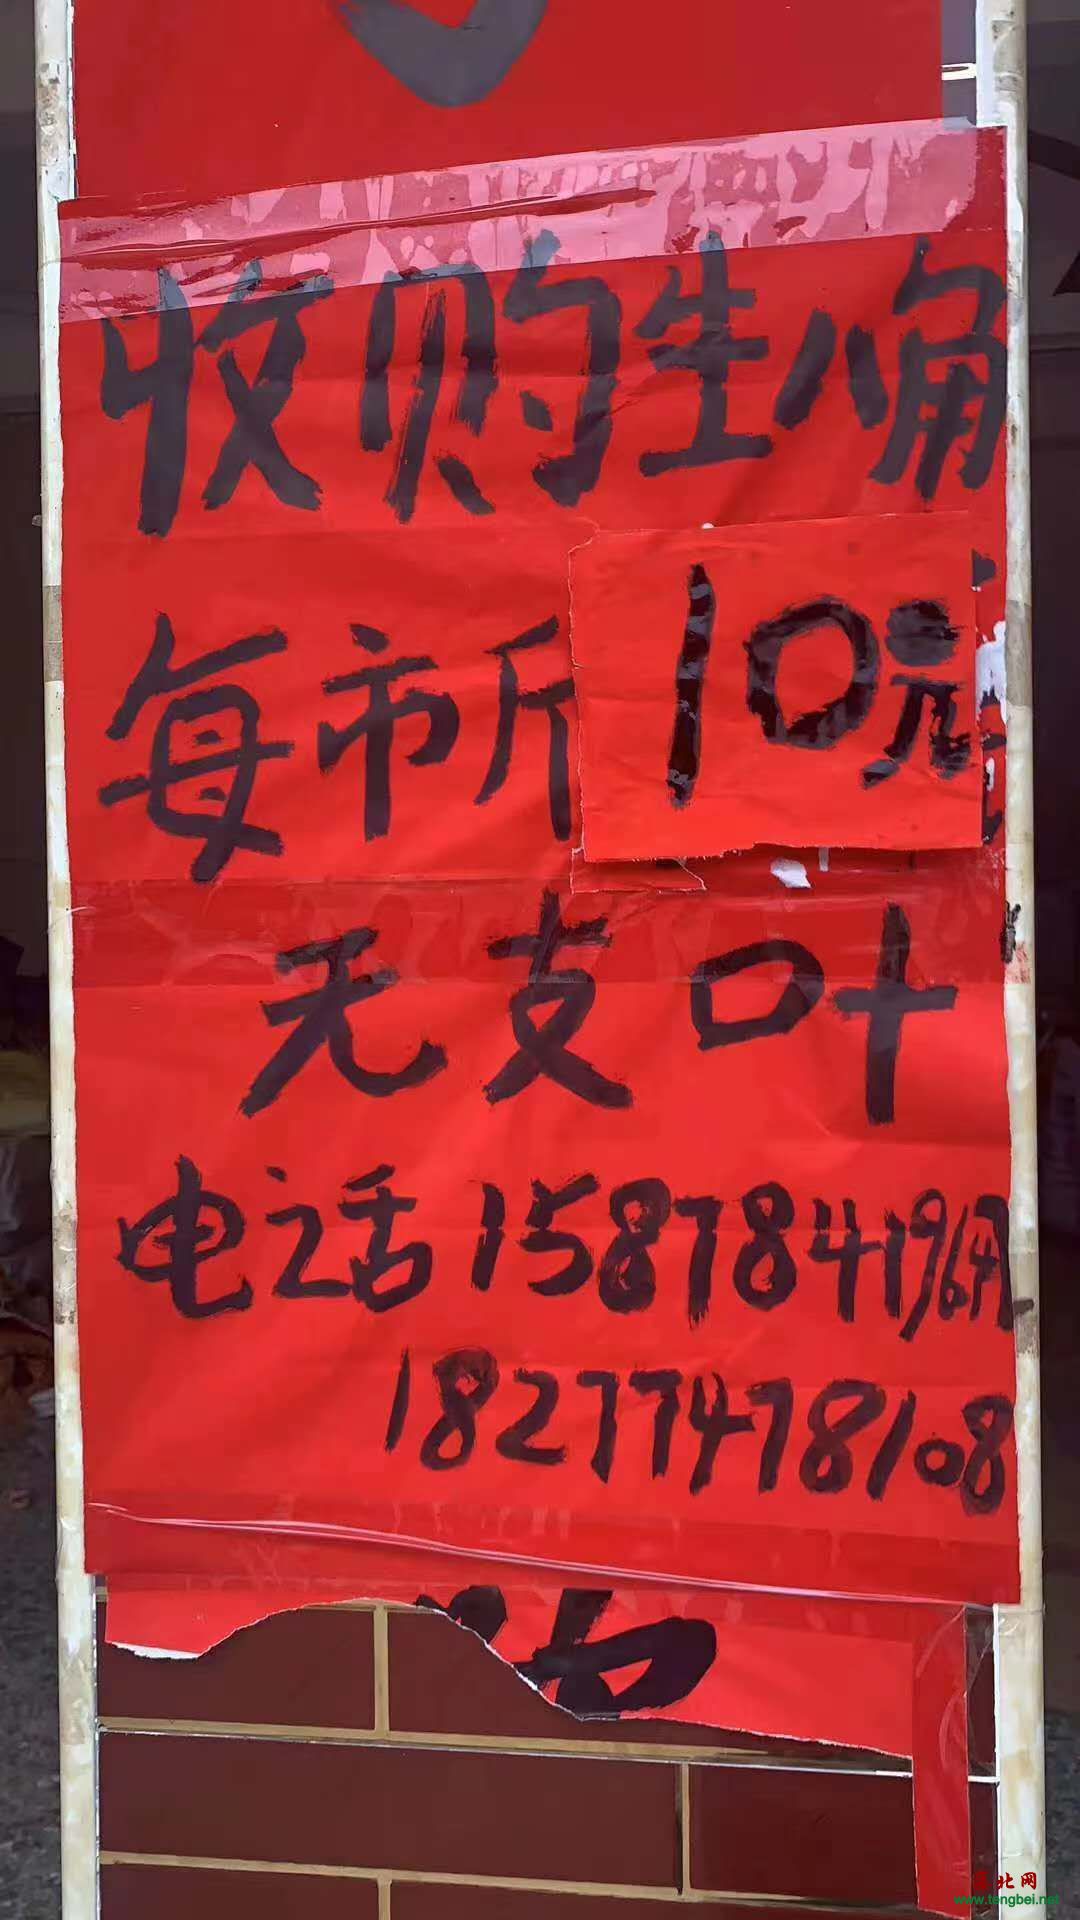 收购生八角
每市斤10元
无支叶
电话15878419647
18277478108
北网
www.tengbei.net